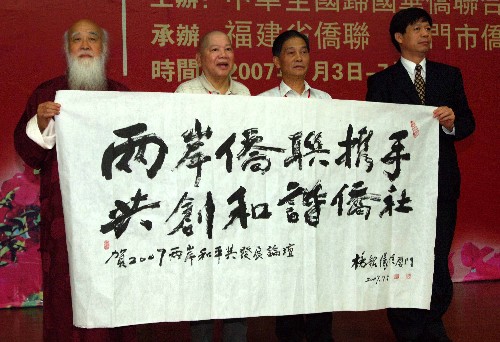 主辦：中華全國歸國華僑聯合
承辦：福建省僑聯 門市僑
時間：2007 月3日-7
兩岸僑聯攜手
共創和諧僑社
賀2007兩岸和平共發展論壇